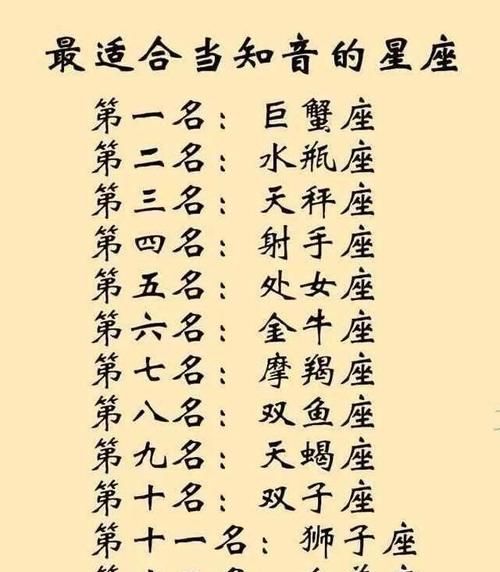 最适合当知音的星座
第一名：巨蟹座
第二名：水瓶座
第三名：天秤座
第四名：射手座
第五名：处女座
第六名：金牛座
第七名：摩羯座
第八名：双鱼座
第九名：天蝎座
第十名：双子座
第十一名：狮子座